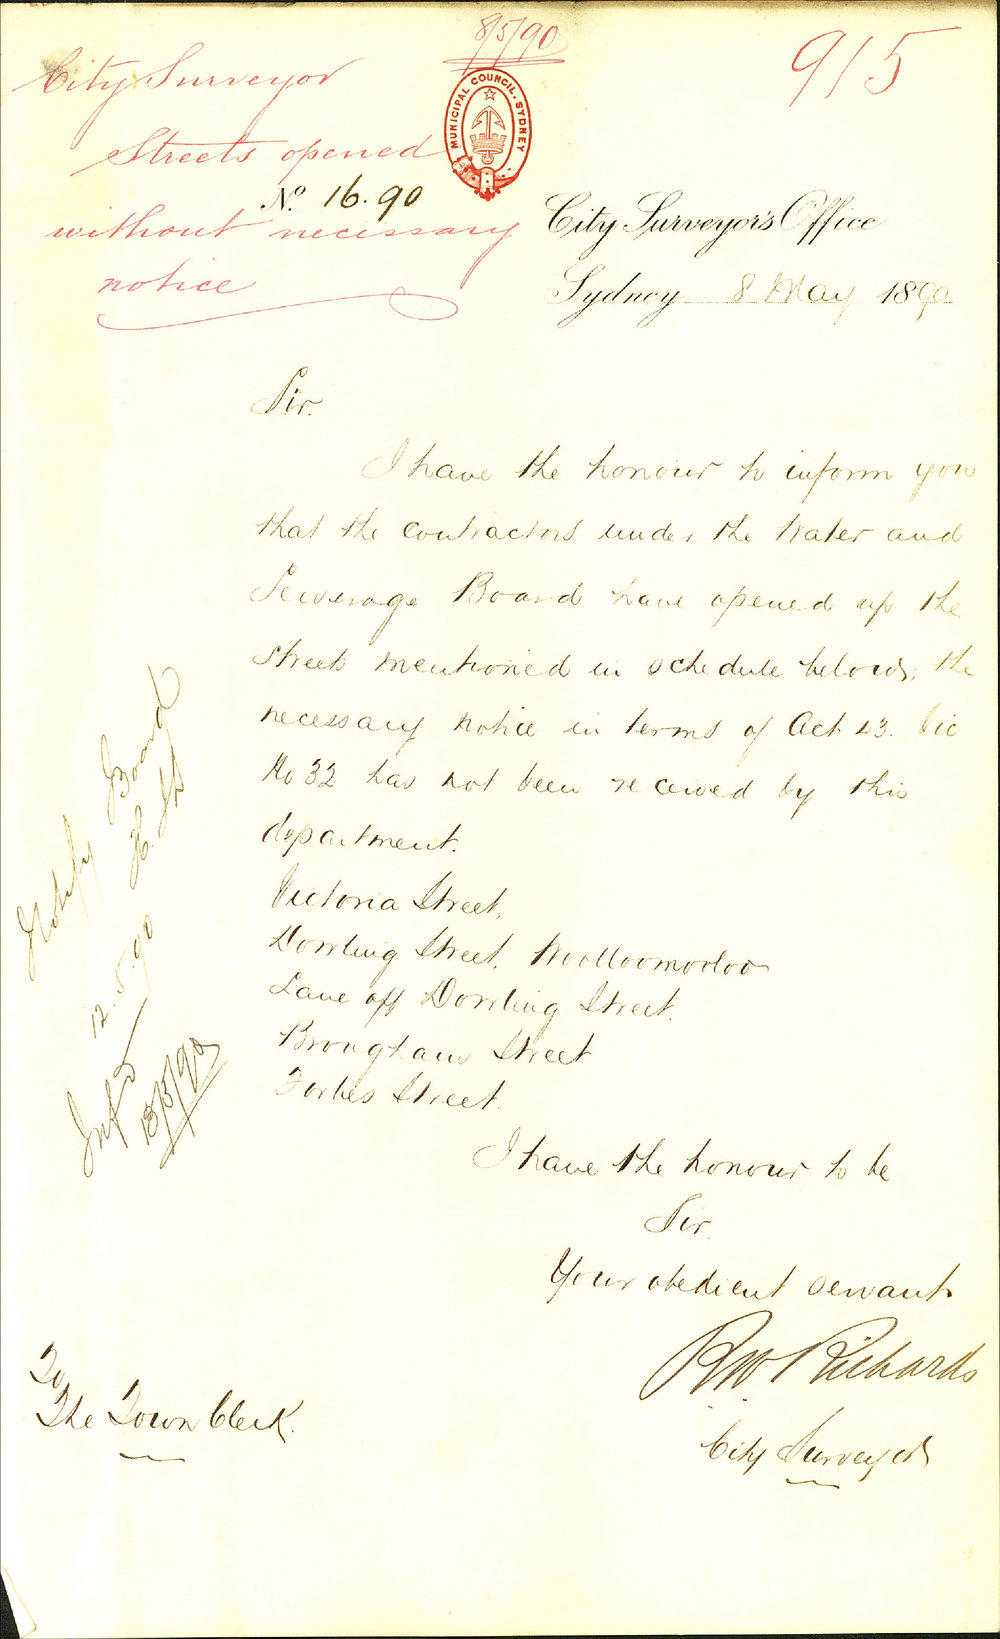 8/5/90
915
City Surveyor
Streets opened
without necessary
notice
MUNICIPAL COUNCIL. SYDNEY
No. 16.90
City Surveyor's Office
Sydney 8 May 1890
Sir.
I have the honour to inform you
that the contractors under the Water and
Sewerage Board have opened up the
streets mentioned in schedule below, the
necessary notice in terms of Act 43. Vic
No 32 has not been received by this
department.
Victoria Street,
Dowling Street. Woolloomooloo
Lane off Dowling Street.
Brougham Street
Forbes Street.
I have the honour to be
Sir.
Your obedient servant
RW Richards
City Surveyor
To
The Town Clerk.
Notify Board
12.5.90
13/5/90